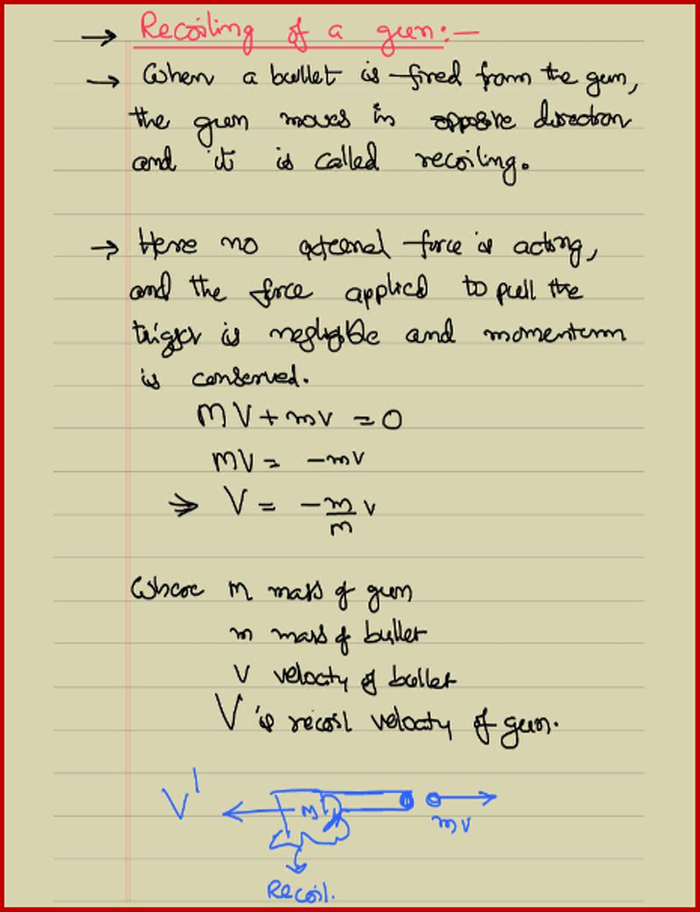 → Recoiling of a gun:—
→ When a bullet is fired from the gun,
the gun moves in opposite direction
and it is called recoiling.
→ Here no external force is acting,
and the force applied to pull the
trigger is negligible and momentum
is conserved.
MV + mv = 0
MV = -mv
⇒ V = -m/m v
Where M mass of gun
m mass of bullet
v velocity of bullet
V is recoil velocity of gun.
V' M mv
Recoil.